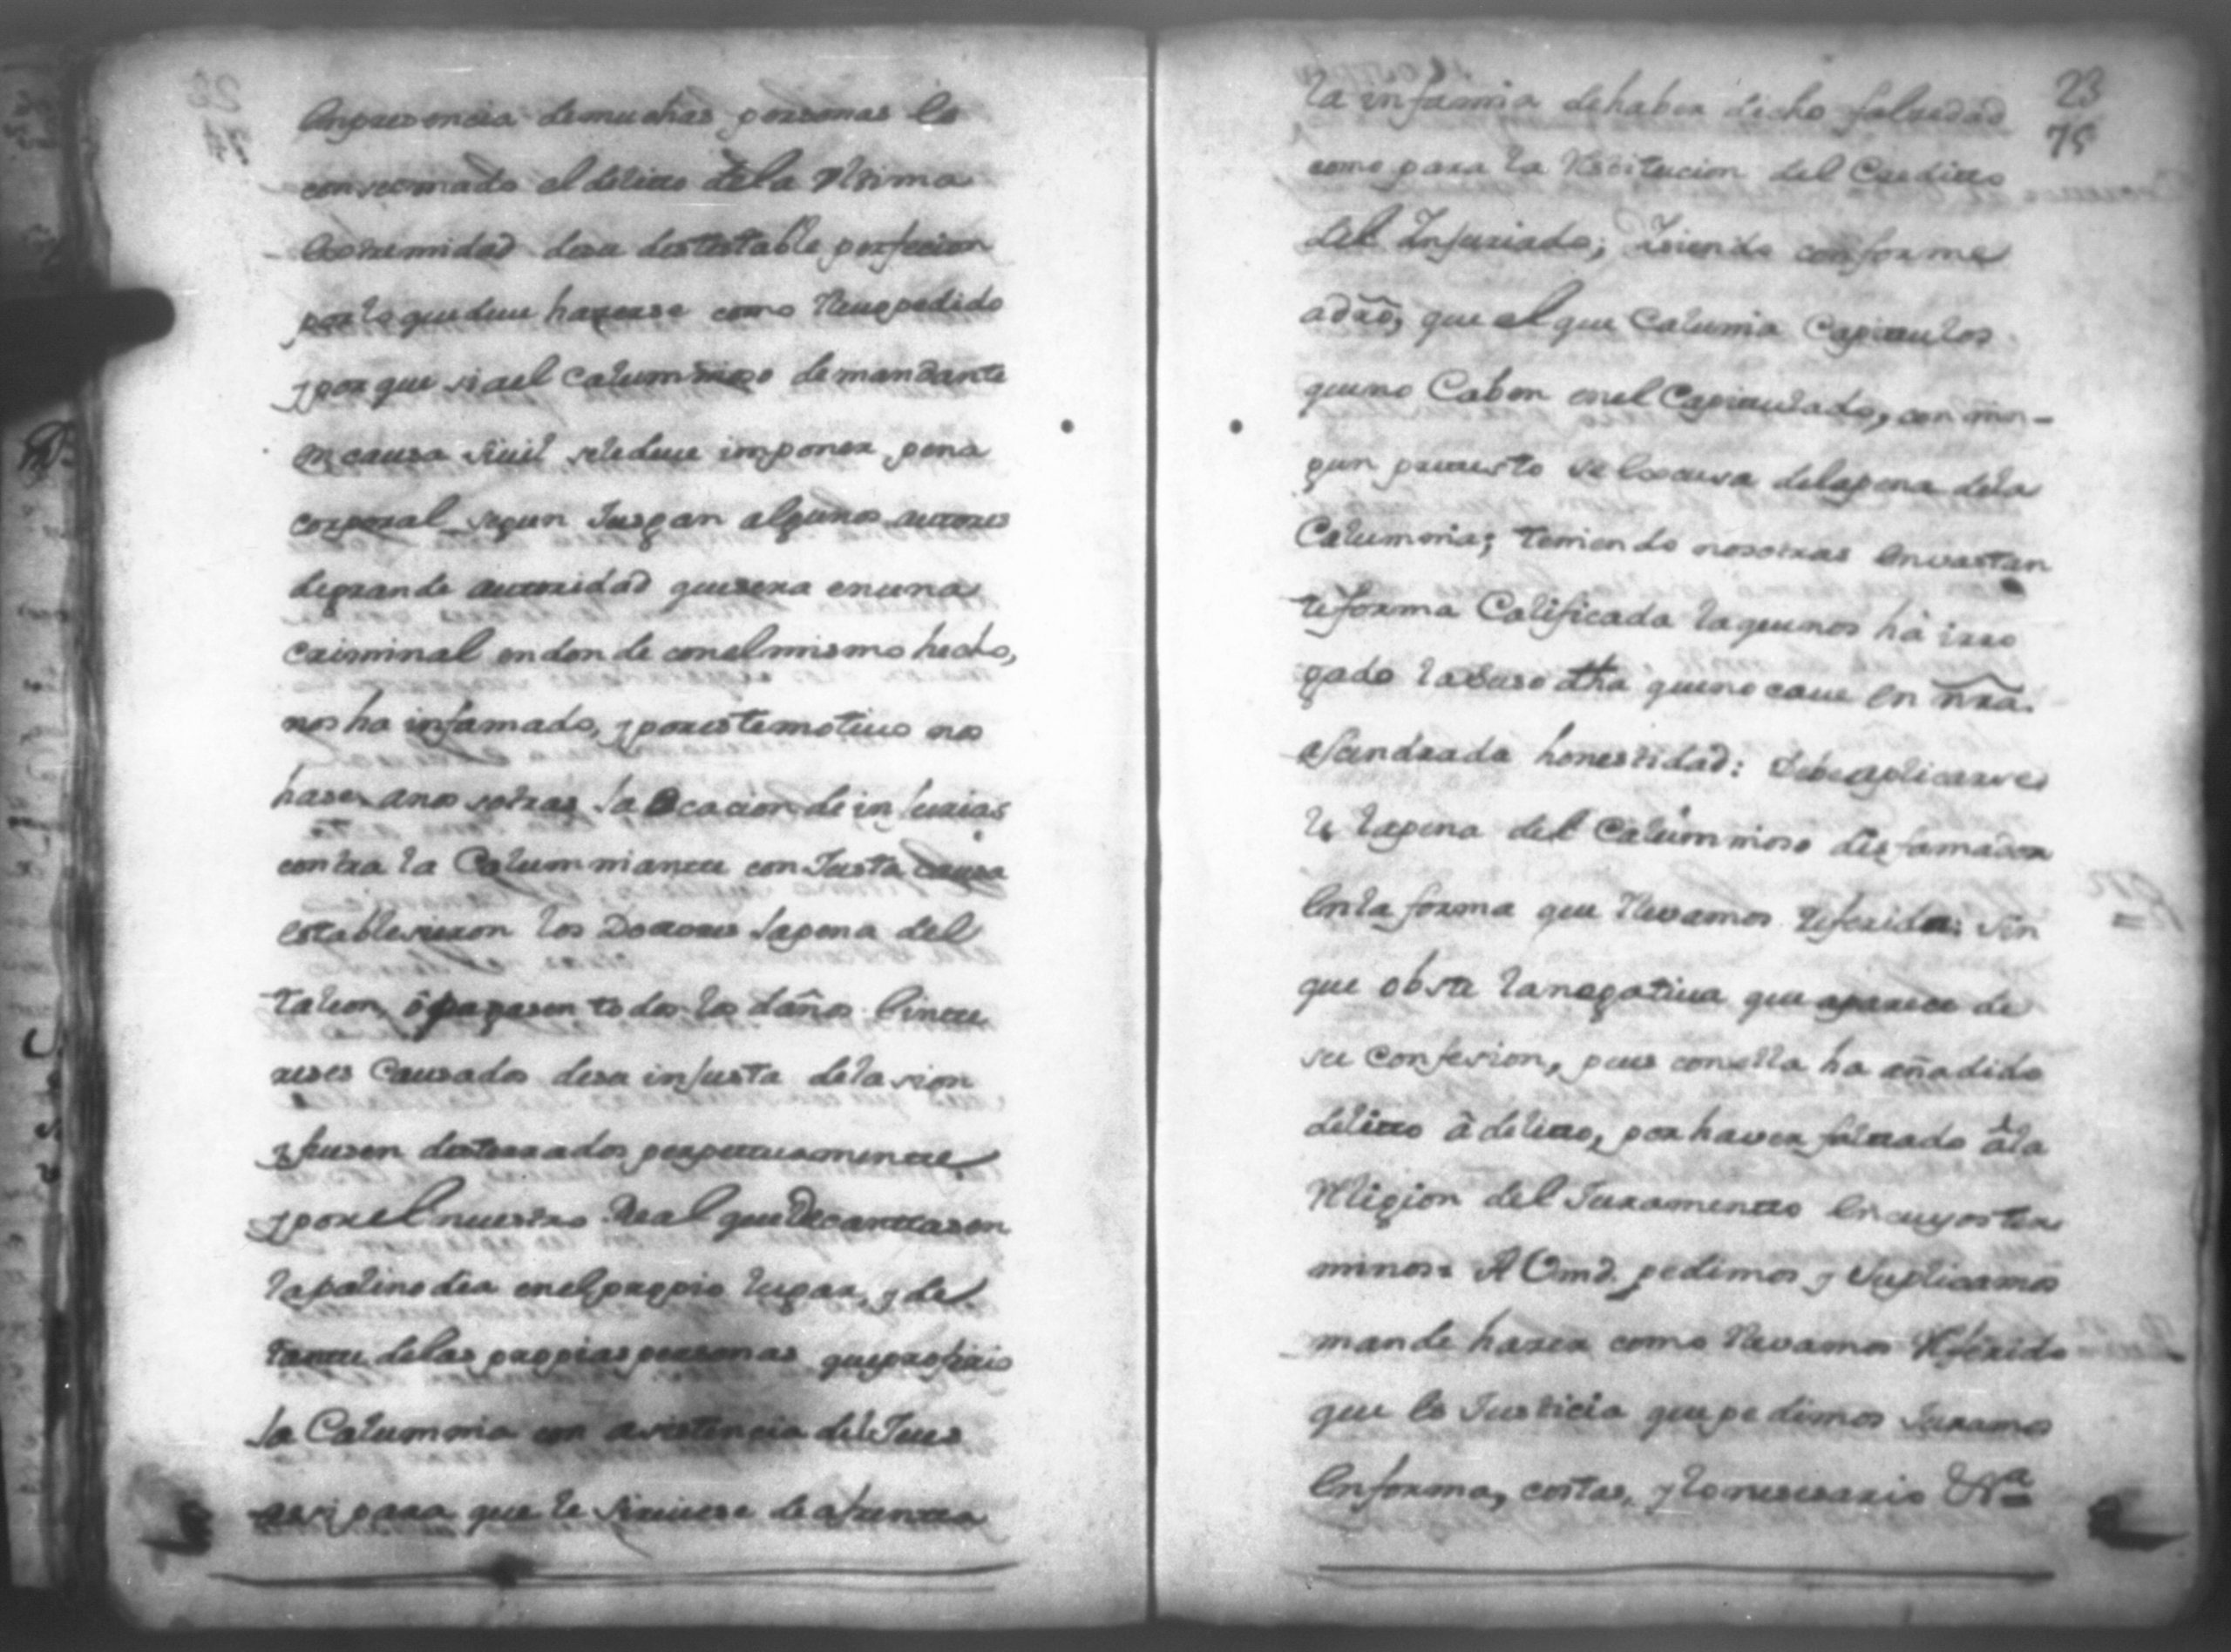 Enpresencia demuchas personas ês
consumado el delitto dela Vltima
Extremidad desu destestable perfecion
porlo quedeue hazerse como lleuo pedido
y por que si ael Calumnioso demandante
en causa siuil seledeue imponer pena
corporal segun Jusgan algunos autores
degrande autoridad quesera enuna
criminal endonde conelmismo hecho,
nos ha infamado, y porestemotiuo nos
hase anosotras la Ocacion de injurias
contra la Calumniante con Justa causa
establesieron los Doctores lapena del
talion, ô pagasen todos los daños Einte
reses Causados desu injusta delasion
y fuesen desterrados perpettuamentte
y porel nuestro Real que Decanttasen
lapalinodia enelpropio lugar, y de
lantte delas propias personas queprofirio
la Calumnia con asistencia del Jues
assi para que le siruiese de afrentta
23
75
la infamia dehaber dicho falsedad
como para la Restitucion del Creditto
del Injuriado; Isiendo conforme
adrõ, que el que Calunia Capittulos
queno Caben enel Capittulado, con nin-
gun pretesto se Escusa delapena dela
Calumnia; teniendo nosotras Envastan
te forma Calificada laquenos hà irro
gado lasuso dha queno caue en nra.
asendrada honestidad: Debe aplicarse
le lapena del Calumnioso disfamador
Enla forma que lleuamos referida: sin
que obste lanegatiua que aparece de
su Confesion, pues conella ha añadido
delitto â delitto, por haver faltado âla
Religion del Juramentto En cuyos ter
minos: A Vmd. pedimos y Suplicamos
mande hazer como lleuamos Referido
que Es Justicia quepedimos Juramos
Enforma, costas, y lo nesesario &ª